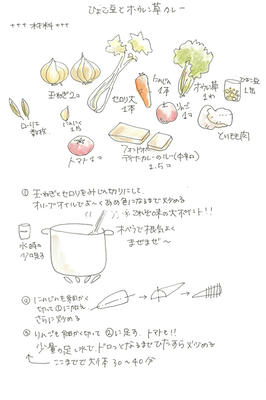 ひよこ豆とホウレン草カレー
+++ 材料 +++
玉ねぎ2コ
セロリ大
1本
にんじん
1本
ホウレン草
1わ
ひよこ豆
1缶
ローリエ
数枚
にんにく
1ケ
りんご
1コ
とりもも肉
トマト1コ
フォンドボー
ディナーカレーのルー(中辛口)
1.5コ
① 玉ねぎとセロリをみじん切りにして、
オリーブオイルでよ〜くあめ色になるまで炒める
※これぞ味の大ポイント!!
木ベラで根気よく
まぜまぜ〜
水 時々
少々足す
② にんじんも細かく
切って①に加え
さらに炒める
③ りんごも細かく切って②に足す、トマトも!!
少量の足し水で、ドロッとなるまでひたすら炒める
ここまでで大体30〜40分